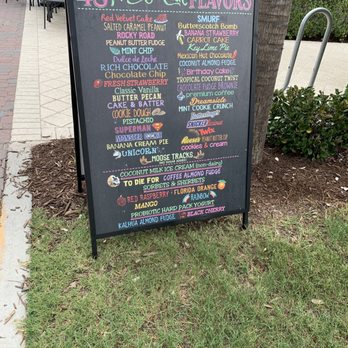 FLAVORS
Red Velvet Cake
SALTED CARAMEL PEANUT
ROCKY ROAD
PEANUT BUTTER FUDGE
MINT CHIP
Dulce de Leche
RICH CHOCOLATE
Chocolate Chip
FRESH STRAWBERRY
Classic Vanilla
BUTTER PECAN
CAKE & BATTER
COOKIE DOUGH
PISTACHIO
SUPERMAN
BIRTHDAY
BANANA CREAM PIE
UNICORN
SMURF
Butterscotch Bomb
BANANA STRAWBERRY
CARROT CAKE
Key Lime Pie
Mexican Hot Chocolate
COCONUT ALMOND FUDGE
Birthday Cake
TROPICAL COCONUT TWIST
CHOCOLATE FUDGE BROWNIE
premium coffee
Dreamsicle
MINT COOKIE CRUNCH
Butterfinger
SNICKERS
Twix
Reese's
cookies & cream
MOOSE TRACKS
COCONUT MILK ICE CREAM (non-dairy)
TO DIE FOR COFFEE ALMOND FUDGE
SORBETS & SHERBETS
RED RASPBERRY • FLORIDA ORANGE
MANGO RAINBOW
PROBIOTIC HARD PACK YOGURT
KALHUA ALMOND FUDGE BLACK CHERRY